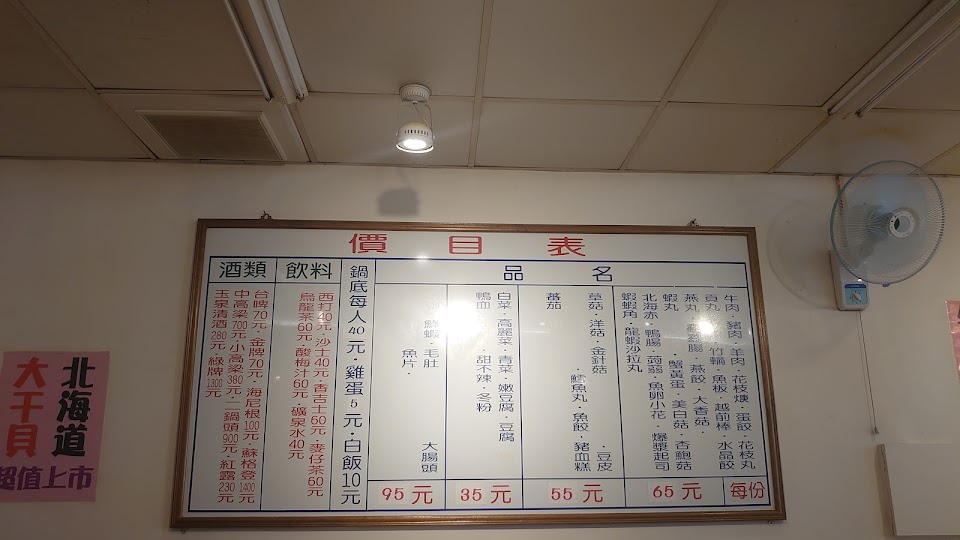 價目表
品名
每份
牛肉·豬肉·羊肉·花枝燠·蛋餃·花枝丸
貢丸·竹輪·魚板·越前棒·水晶餃
燕丸·燕餃·大香菇·
蝦丸·蟹黃蛋·美白菇·杏鮑菇
北海赤·鴨腸·蒟蒻·魚卵小花·爆漿起司
蝦蝦角·龍蝦沙拉丸
65元
草菇·洋菇·金針菇·豆皮
鱈魚丸·魚餃·豬血糕
蕃茄
55元
白菜·高麗菜·青菜·嫩豆腐·豆腐
鴨血·甜不辣·冬粉
35元
鮮蝦·毛肚·大腸頭
魚片·
95元
鍋底每人40元·雞蛋5元·白飯10元
飲料
西打40元·沙士40元·香吉士60元·麥仔茶60元
烏龍茶60元·酸梅汁60元·礦泉水40元
酒類
台啤70元·金牌70元·海尼根100元·蘇格登1400元
中高梁700元·小高梁380元·二鍋頭900元·紅露230元
玉泉清酒280元·綠牌1300元
北海道
大干貝
超值上市